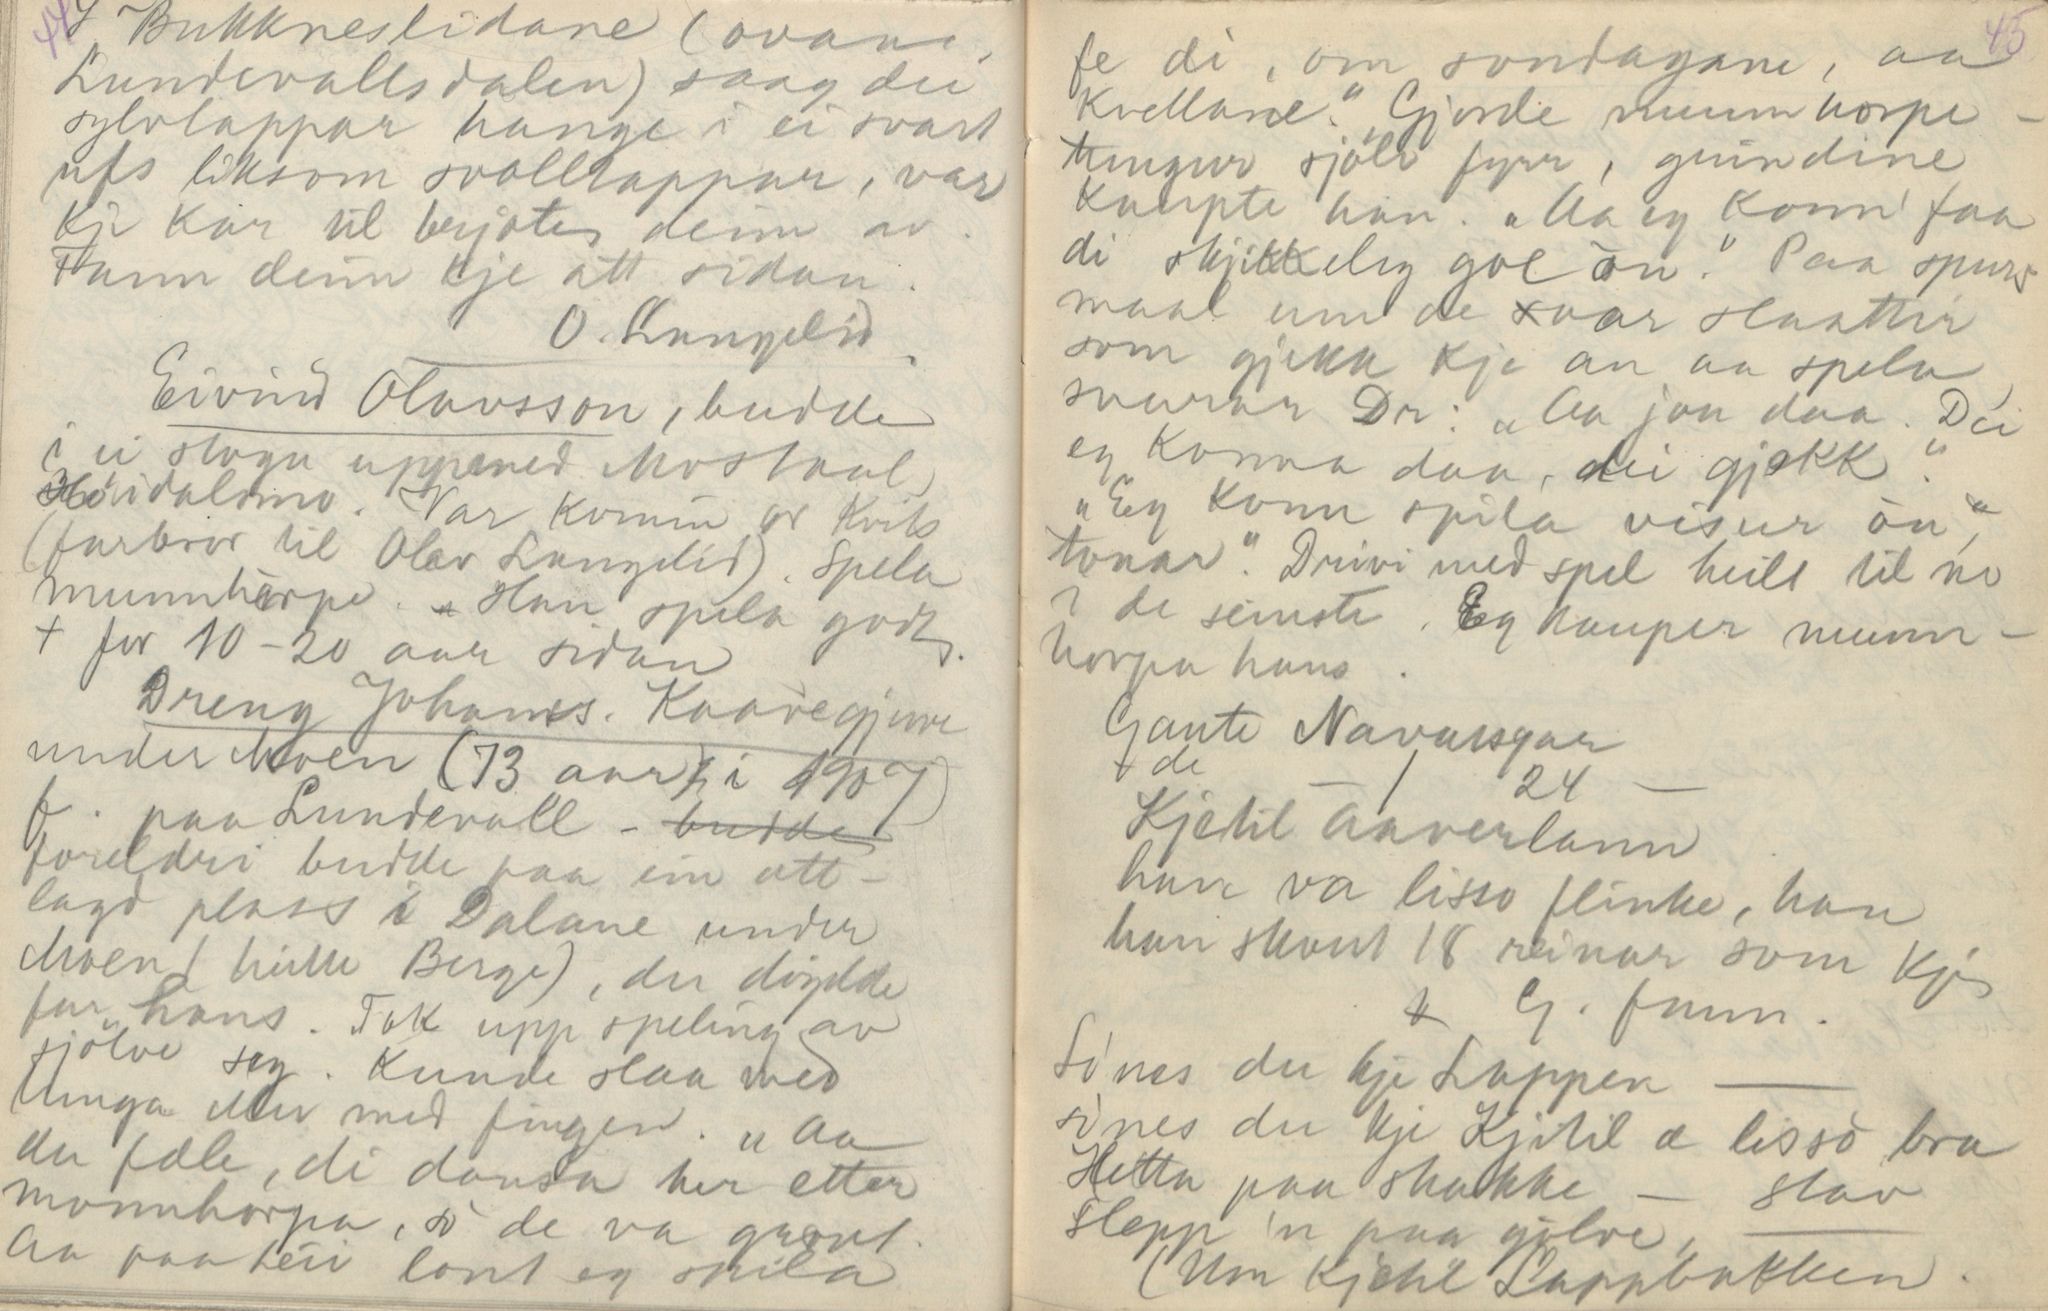 44
I Bukkneslidane (ovani
Lundevallsdalen) saag dei
sylvtappar hange i ei svart
ufs liksom svolltappar, var
kji kar til brjote deim av.
Fann deim kje att sidan.
O. Langelid.
Eivind Olavsson, budde
i ei stogu uppmed Mostaul,
Høidalsmo. Var komin or Kvits
(farbror til Olav Langelid). Spela
munnhorpe. Han spela godt.
+ for 10-20 aar sidan
Dreng Johannes. Kaavegjuve
under Moen (73 aar i 1907)
f. paa Lundevall - budde
foreldri budde paa ein att-
lagd plass i Dalane under
Moen (heitte Berge), der døydde
far hans. Tok upp speling av
sjølve seg. Kunde slaa med
tunga eller med fingen. "Aa
du fæle, di dansa her etter
monnhorpa, so de va grovt.
Aa paa tei lout eg spila
45
fe di, om sondagane, aa
kvellane." Gjorde munnhorpe-
tungur sjølv fyrr, grindine
kaupte han. "Aa eg konn' faa
di skjikkeleg goe òn." Paa spurs
maal um de var slaattir
som gjekk kje an aa spela,
svarar Dr: "Aa jau daa. Dei
eg konna daa, dei gjekk."
"Eg konn spila visur òn,"
tonar". Drivi med spel heilt til no
i de seinste. Eg kauper munn-
horpa hans.
Gaute Navarsgar
de
– / 24 —
Kjetil Aaverlann
han va lisso flinke, han
han skout 18 reinar som kje
G. fann.
Sines du kje Lappen —
sines du kje Kjetil æ lisso bra
Hetta paa skakke — stav
Slepp 'n paa golve, —
(Um Kjetil Lappbakken.